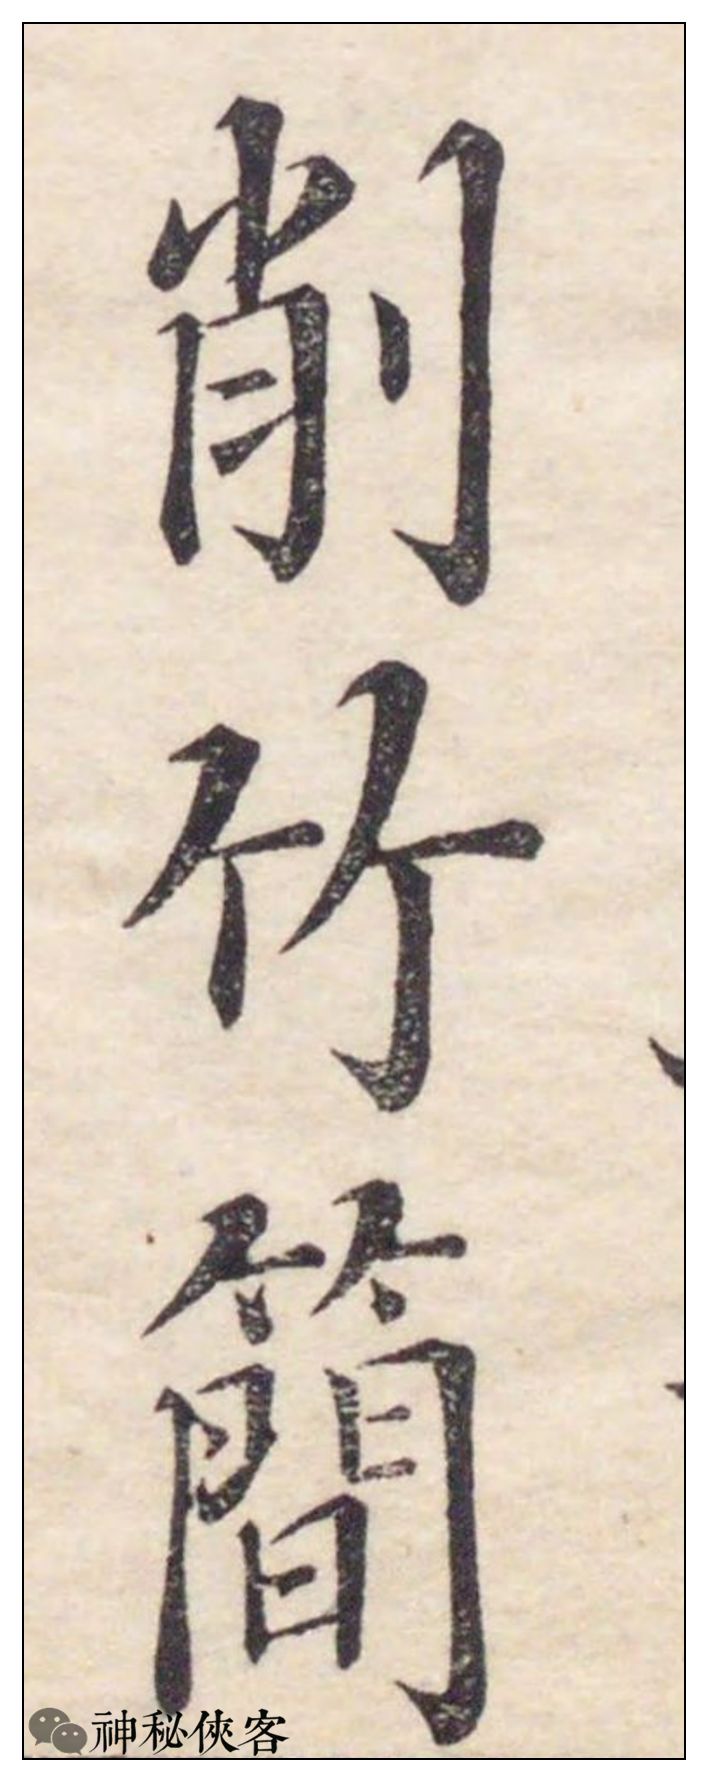 削竹簡
神秘俠客